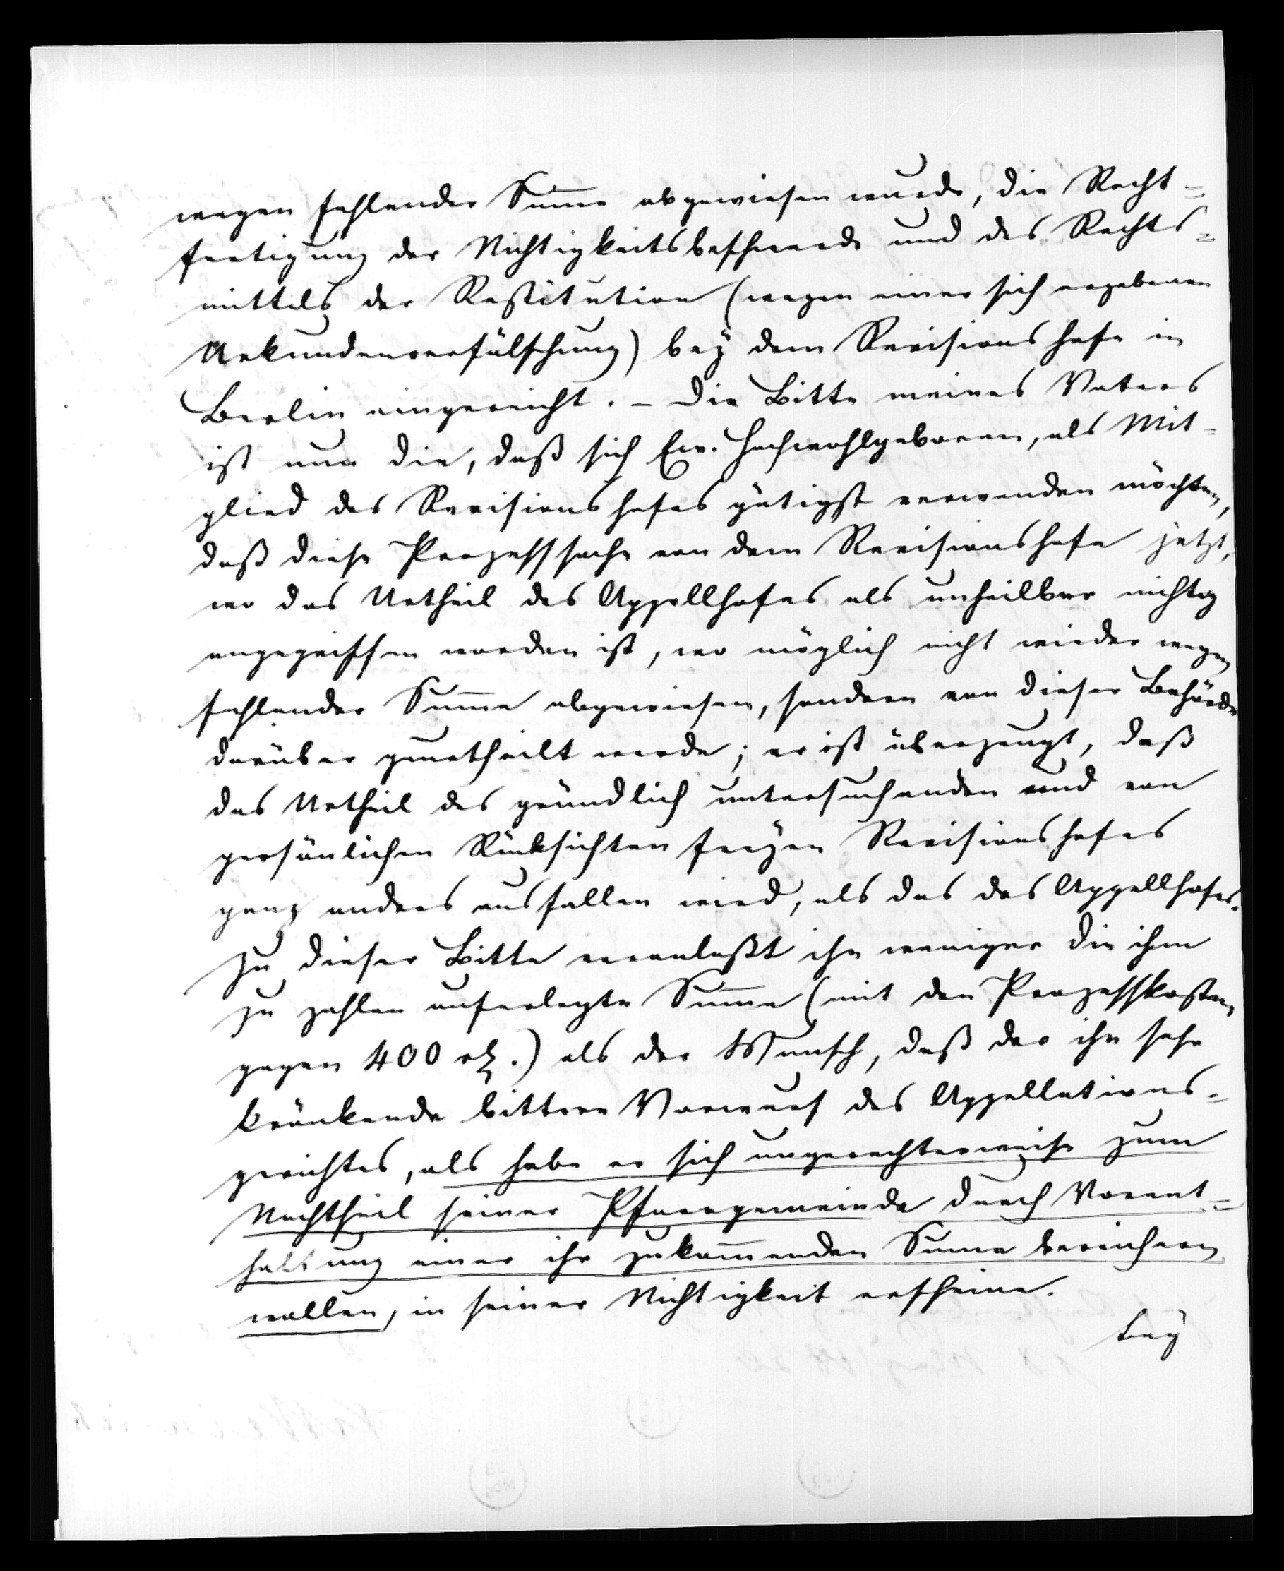 wegen fehlender Sum̅e abgewiesen wurde, die Recht=
fertigung der Nichtigkeitsbeschwerde und des Rechts=
mittels der Restitution (wegen einer sich ergebenen
Urkundenverfälschung) beÿ dem Revisionshofe in
Berlin eingereicht. – Die Bitte meines Vaters
ist nun die, daß sich Ew. Hochwohlgeboren, als Mit-
glied des Revisionshofes gütigst verwenden möchten,
daß diese Prozeßsache von dem Revisionshofe jetzt,
wo das Urtheil des Appellhofes als unheilbar nichtig
angegriffen worden ist, wo möglich nicht wieder wegen
fehlender Sum̅e abgewiesen, sondern von dieser Behörde
darüber geurtheilt werde; er ist überzeugt, daß
das Urtheil des gründlich untersuchenden und von
persönlichen Rücksichten freÿen Revisionshofes
ganz anders ausfallen wird, als das des Appellhofes.
Zu dieser Bitte veranlaßt ihn weniger die ihm
zu zahlen auferlegte Sum̅e (mit den Prozeßkosten
gegen 400 rth.) als der Wunsch, daß der ihn sehr
kränkende bittere Vorwurf des Appellations-
gerichtes, als habe er sich ungerechterweise zum
Nachtheil seiner Pfarrgemeinde durch Vorent=
haltung einer ihr zukom̅enden Sum̅e bereichern
wollen, in seiner Nichtigkeit erscheine.
Beÿ